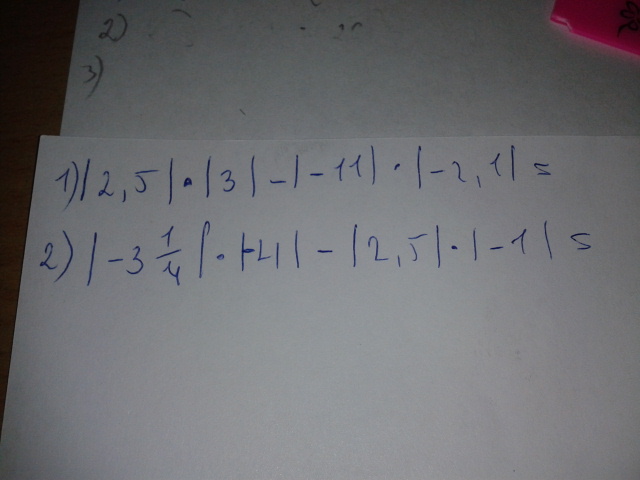 2)
3)
1) |2,5| · |3| - |-11| · |-2,1| =
2) |-3 1/4| · |-4| - |2,5| · |-1| =